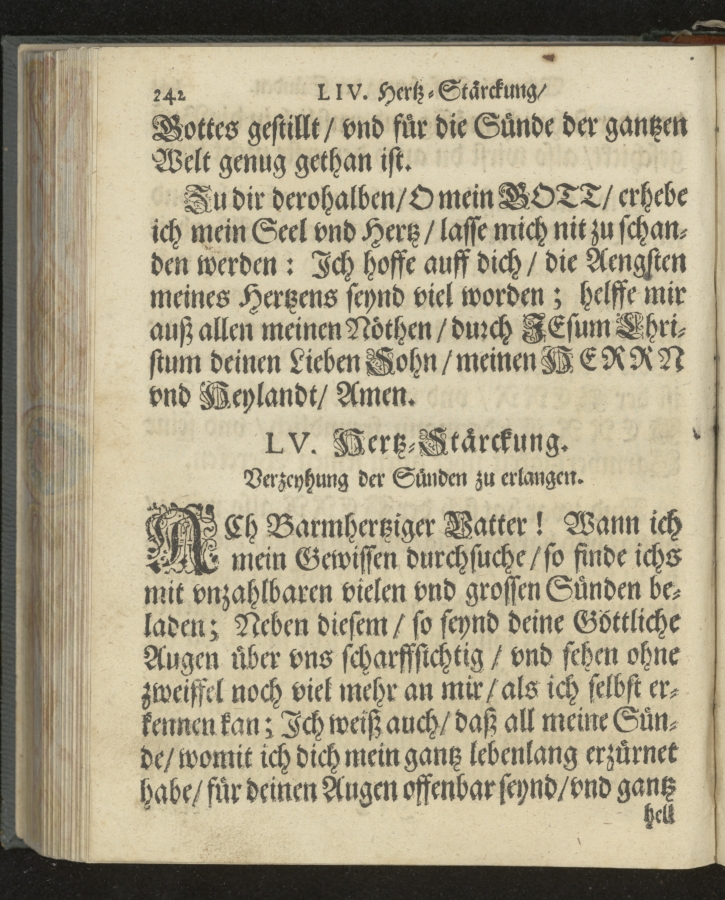 242 LIV. Hertz-Stärckung/
Gottes gestillt / vnd für die Sünde der gantzen
Welt genug gethan ist.
Zu dir derohalben/ O mein GOTT/ erhebe
ich mein Seel vnd Hertz / lasse mich nit zu schan-
den werden : Ich hoffe auff dich / die Aengsten
meines Hertzens seynd viel worden ; helffe mir
auß allen meinen Nöthen / durch JEsum Chri-
stum deinen Lieben Sohn / meinen HERRN
vnd Heylandt/ Amen.
LV. Hertz-Stärckung.
Verzeyhung der Sünden zu erlangen.
ACh Barmhertziger Vatter ! Wann ich
mein Gewissen durchsuche / so finde ichs
mit vnzahlbaren vielen vnd grossen Sünden be-
laden ; Neben diesem / so seynd deine Göttliche
Augen über vns scharffsichtig / vnd sehen ohne
zweiffel noch viel mehr an mir / als ich selbst er-
kennen kan ; Ich weiß auch/ daß all meine Sün-
de/ womit ich dich mein gantz lebenlang erzürnet
habe/ für deinen Augen offenbar seynd/ vnd gantz
hell